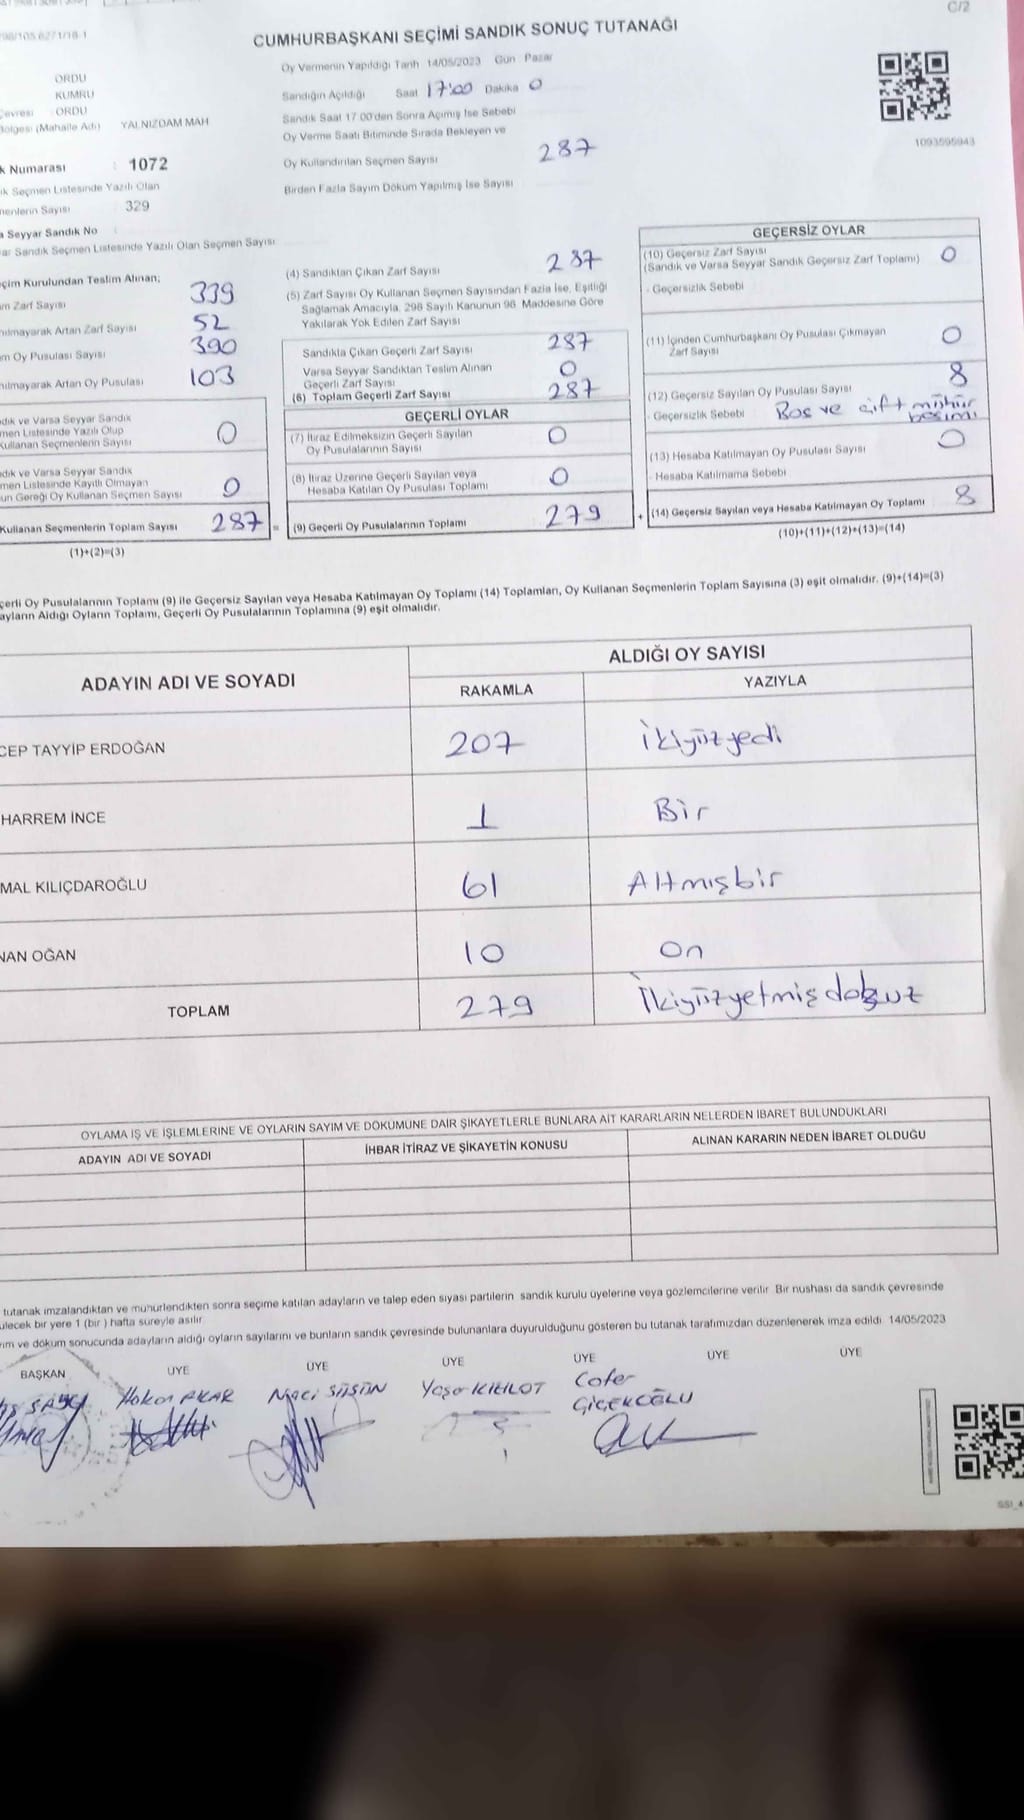 C/2
CUMHURBAŞKANI SEÇİMİ SANDIK SONUÇ TUTANAĞI
ORDU
KUMRU
ORDU
(Mahalle Adı) YALNIZDAM MAH
Oy Vermenin Yapıldığı Tarih 14/05/2023 Gün Pazar
Sandığın Açıldığı Saat 17:00 Dakika 0
Sandık Saat 17.00'den Sonra Açılmış İse Sebebi
Oy Verme Saati Bitiminde Sırada Bekleyen ve
Oy Kullandırılan Seçmen Sayısı 287
Birden Fazla Sayım Döküm Yapılmış İse Sayısı
1093595943
k Numarası : 1072
ık Seçmen Listesinde Yazılı Olan
menlerin Sayısı : 329
a Seyyar Sandık No
ar Sandık Seçmen Listesinde Yazılı Olan Seçmen Sayısı
çim Kurulundan Teslim Alınan;
m Zarf Sayısı 339
nılmayarak Artan Zarf Sayısı 52
m Oy Pusulası Sayısı 390
nılmayarak Artan Oy Pusulası 103
ndık ve Varsa Seyyar Sandık
men Listesinde Yazılı Olup
Kullanan Seçmenlerin Sayısı 0
ndık ve Varsa Seyyar Sandık
men Listesinde Kayıtlı Olmayan
un Gereği Oy Kullanan Seçmen Sayısı 0
Kullanan Seçmenlerin Toplam Sayısı 287 =
(1)+(2)=(3)
(4) Sandıktan Çıkan Zarf Sayısı 287
(5) Zarf Sayısı Oy Kullanan Seçmen Sayısından Fazla İse, Eşitliği
Sağlamak Amacıyla, 298 Sayılı Kanunun 98. Maddesine Göre
Yakılarak Yok Edilen Zarf Sayısı
Sandıkta Çıkan Geçerli Zarf Sayısı 287
Varsa Seyyar Sandıktan Teslim Alınan
Geçerli Zarf Sayısı 0
(6) Toplam Geçerli Zarf Sayısı 287
GEÇERLİ OYLAR
(7) İtiraz Edilmeksizin Geçerli Sayılan
Oy Pusulalarının Sayısı 0
(8) İtiraz Üzerine Geçerli Sayılan veya
Hesaba Katılan Oy Pusulası Toplamı 0
(9) Geçerli Oy Pusulalarının Toplamı 279 +
GEÇERSİZ OYLAR
(10) Geçersiz Zarf Sayısı
(Sandık ve Varsa Seyyar Sandık Geçersiz Zarf Toplamı) 0
- Geçersizlik Sebebi
(11) İçinden Cumhurbaşkanı Oy Pusulası Çıkmayan
Zarf Sayısı 0
(12) Geçersiz Sayılan Oy Pusulası Sayısı 8
- Geçersizlik Sebebi Boş ve çift mühür
(13) Hesaba Katılmayan Oy Pusulası Sayısı 0
- Hesaba Katılmama Sebebi
(14) Geçersiz Sayılan veya Hesaba Katılmayan Oy Toplamı 8
(10)+(11)+(12)+(13)=(14)
çerli Oy Pusulalarının Toplamı (9) ile Geçersiz Sayılan veya Hesaba Katılmayan Oy Toplamı (14) Toplamları, Oy Kullanan Seçmenlerin Toplam Sayısına (3) eşit olmalıdır. (9)+(14)=(3)
ayların Aldığı Oyların Toplamı, Geçerli Oy Pusulalarının Toplamına (9) eşit olmalıdır.
ADAYIN ADI VE SOYADI ALDIĞI OY SAYISI
RAKAMLA YAZIYLA
CEP TAYYİP ERDOĞAN 207 İkiyüzyedi
HARREM İNCE 1 Bir
MAL KILIÇDAROĞLU 61 Altmışbir
NAN OĞAN 10 On
TOPLAM 279 İkiyüzyetmişdokuz
OYLAMA İŞ VE İŞLEMLERİNE VE OYLARIN SAYIM VE DÖKÜMÜNE DAİR ŞİKAYETLERLE BUNLARA AİT KARARLARIN NELERDEN İBARET BULUNDUKLARI
ADAYIN ADI VE SOYADI İHBAR İTİRAZ VE ŞİKAYETİN KONUSU ALINAN KARARIN NEDEN İBARET OLDUĞU
tutanak imzalandıktan ve mühürlendikten sonra seçime katılan adayların ve talep eden siyasi partilerin sandık kurulu üyelerine veya gözlemcilerine verilir. Bir nüshası da sandık çevresinde
ülecek bir yere 1 (bir) hafta süreyle asılır.
ım ve döküm sonucunda adayların aldığı oyların sayılarını ve bunların sandık çevresinde bulunanlara duyurulduğunu gösteren bu tutanak tarafımızdan düzenlenerek imza edildi. 14/05/2023
BAŞKAN ÜYE ÜYE ÜYE ÜYE ÜYE ÜYE
Hakan AKAR Naci SÜSÜN Yaşar KIZILOT Cafer
ÇİÇEKOĞLU